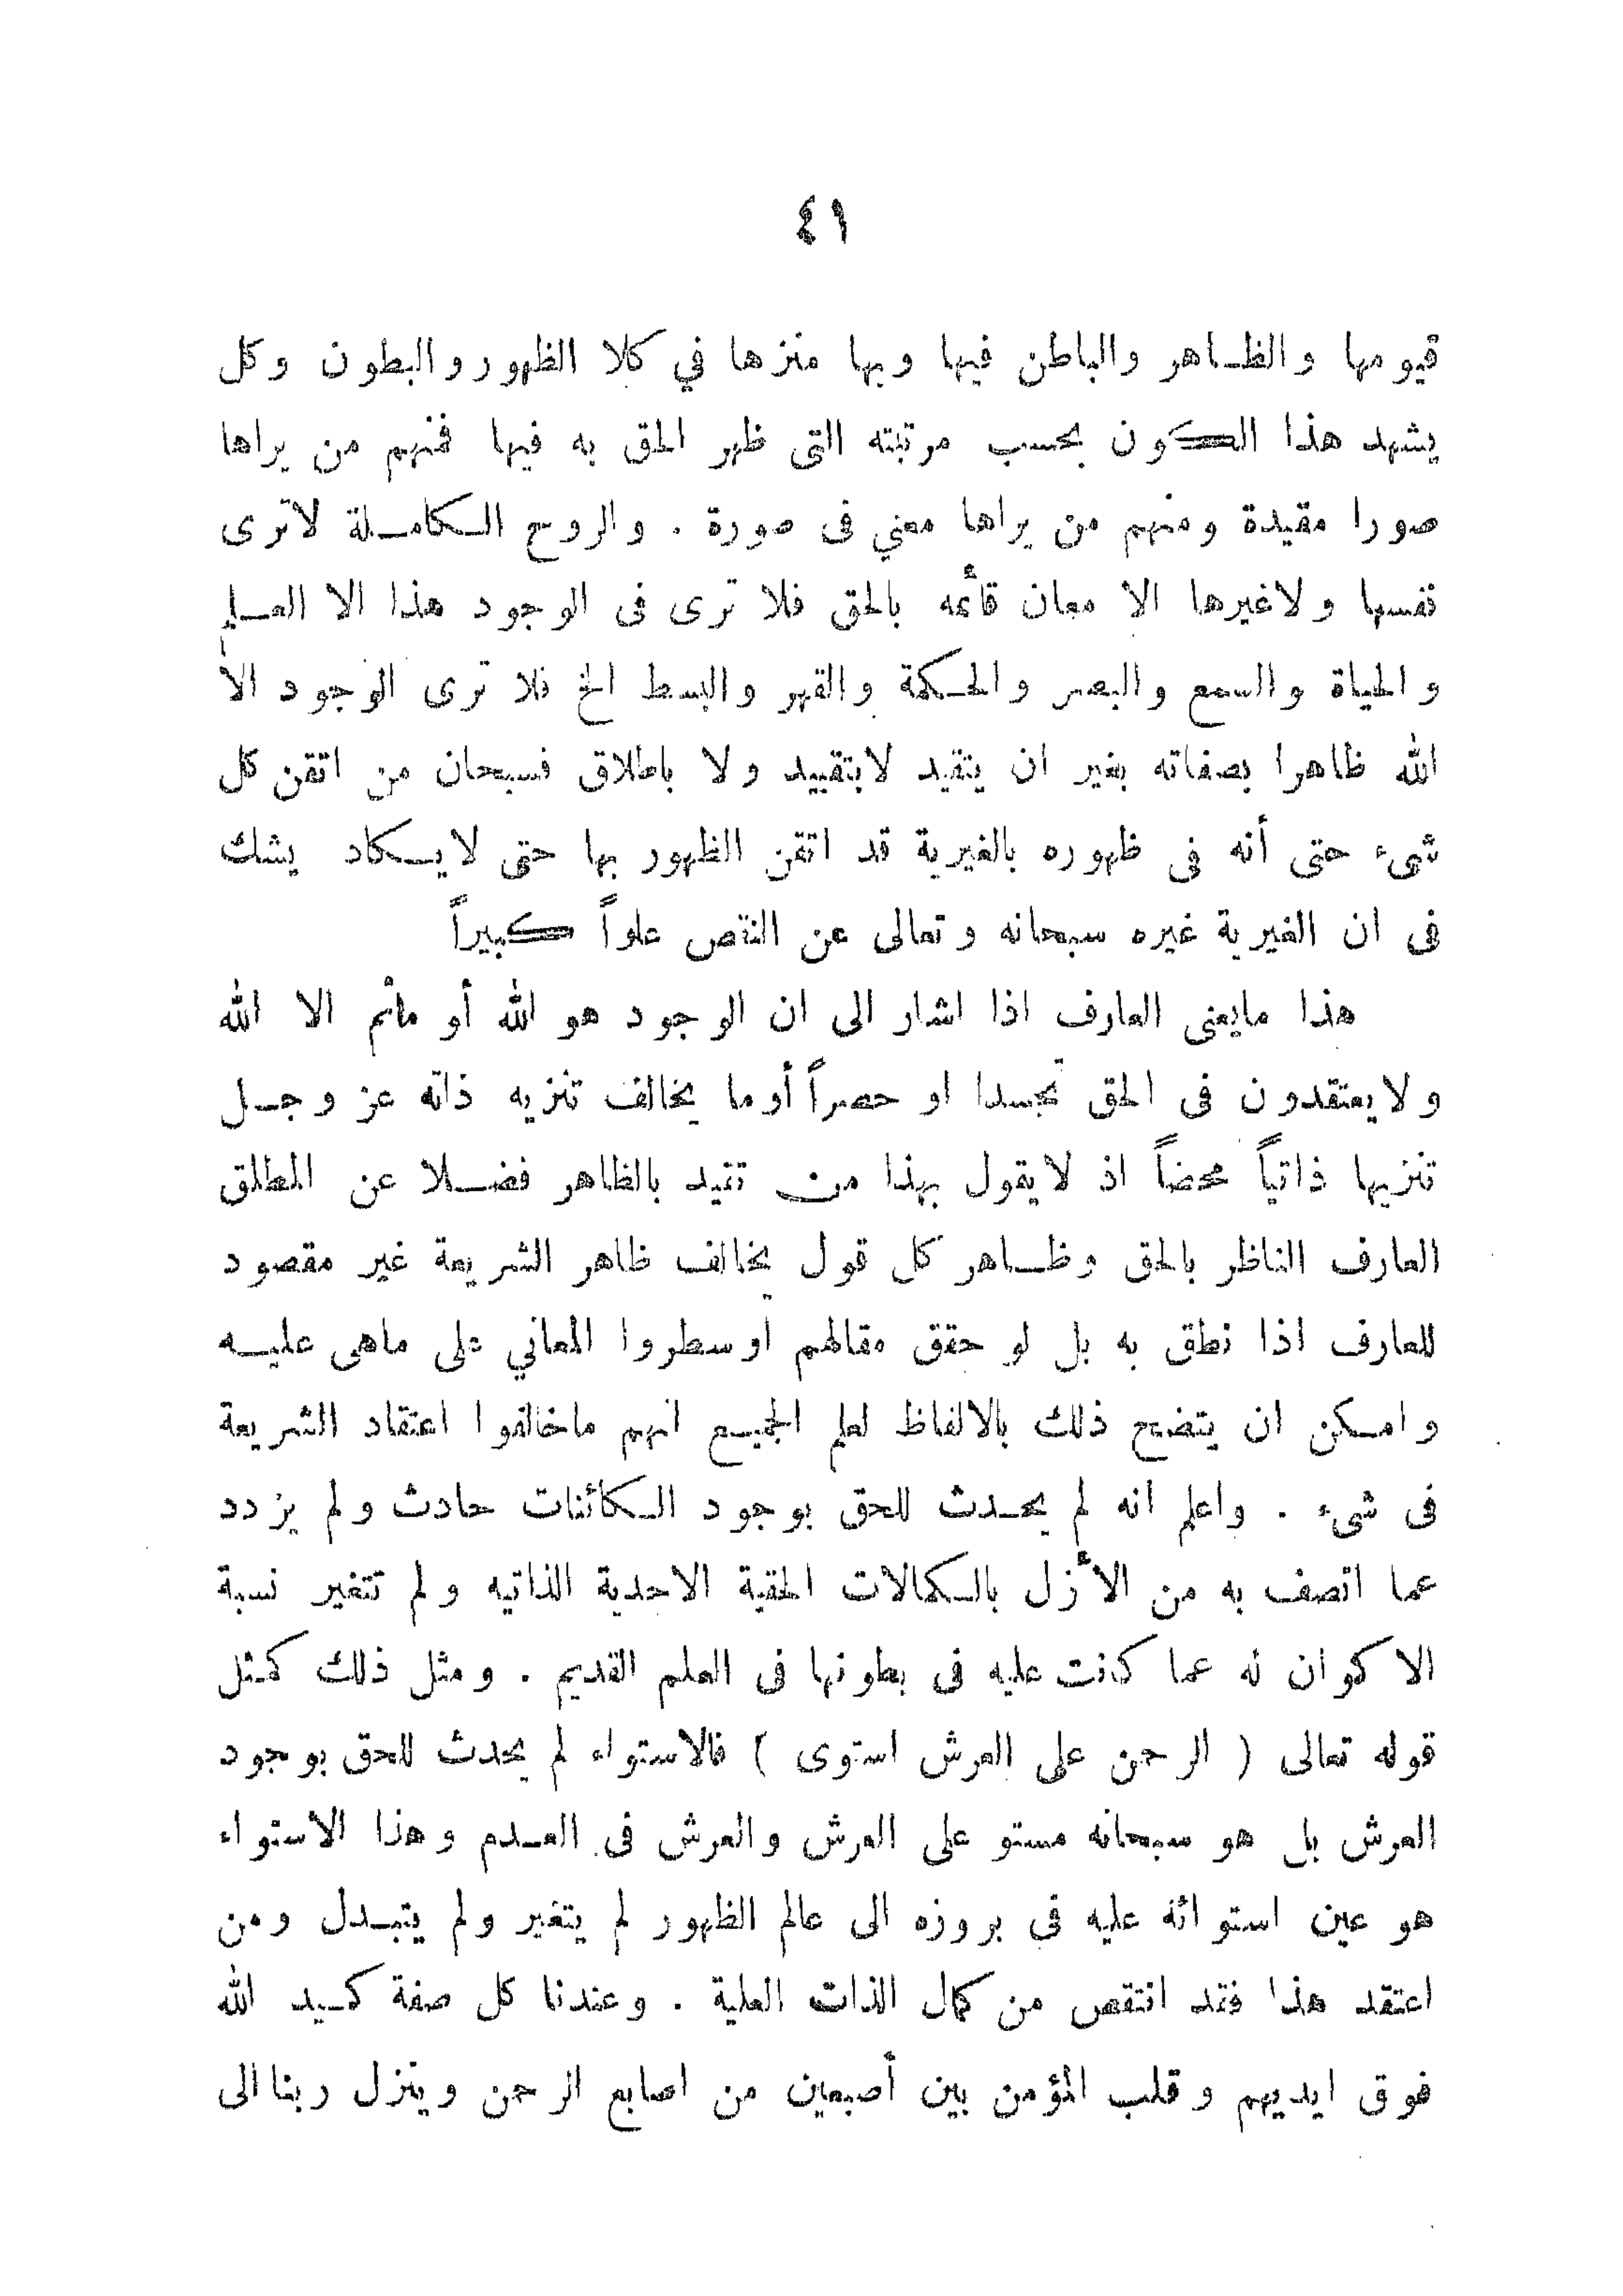 ٤١
قيومها والظاهر والباطن فيها وبها منزها في كلا الظهور والبطون وكل
يشهد هذا الكون بحسب مرتبته التى ظهر الحق به فيها فمنهم من يراها
صورا مقيدة ومنهم من يراها معني فى صورة . والروح الكاملة لاترى
نفسها ولاغيرها الا معان قائمه بالحق فلا ترى فى الوجود هذا الا العلم
والحياة والسمع والبصر والحكمة والقهر والبسط الخ فلا ترى الوجود الا
الله ظاهرا بصفاته بغير ان يتقيد لابتقييد ولا باطلاق فسبحان من اتقن كل
شىء حتى أنه فى ظهوره بالغيرية قد اتقن الظهور بها حتى لايكاد يشك
فى ان الغيرية غيره سبحانه وتعالى عن النقص علواً كبيراً
هذا مايعنى العارف اذا اشار الى ان الوجود هو الله أو ماثم الا الله
ولايعتقدون فى الحق تجسدا او حصراً أوما يخالف تنزيه ذاته عز وجل
تنزيها ذاتياً محضاً اذ لايقول بهذا من تقيد بالظاهر فضلا عن المطلق
العارف الناظر بالحق وظاهر كل قول يخالف ظاهر الشريعة غير مقصود
للعارف اذا نطق به بل لو حقق مقالهم او سطروا المعاني على ماهى عليه
وامكن ان يتضح ذلك بالالفاظ لعلم الجميع انهم ماخالفوا اعتقاد الشريعة
فى شىء . واعلم انه لم يحدث للحق بوجود الكائنات حادث ولم يزدد
عما اتصف به من الأزل بالكمالات الحقية الاحدية الذاتيه ولم تتغير نسبة
الاكوان له عما كانت عليه فى بطونها فى العلم القديم . ومثل ذلك كمثل
قوله تعالى ( الرحمن على العرش استوى ) فالاستواء لم يحدث للحق بوجود
العرش بل هو سبحانه مستو على العرش والعرش فى العدم وهذا الاستواء
هو عين استوائه عليه فى بروزه الى عالم الظهور لم يتغير ولم يتبدل ومن
اعتقد هذا فقد انتقص من كمال الذات العلية . وعندنا كل صفة كيد الله
فوق ايديهم وقلب المؤمن بين أصبعين من اصابع الرحمن وينزل ربنا الى